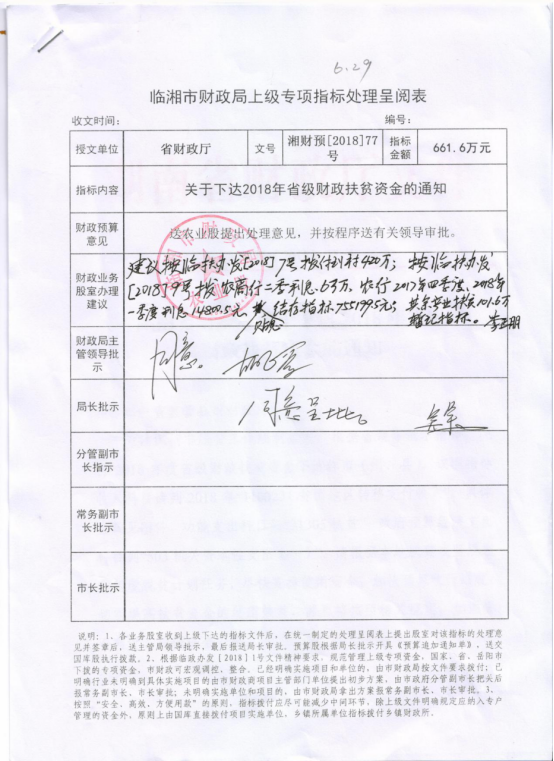 6.29
临湘市财政局上级专项指标处理呈阅表
收文时间： 编号：
授文单位 省财政厅 文号 湘财预[2018]77号 指标金额 661.6万元
指标内容 关于下达2018年省级财政扶贫资金的通知
财政预算意见 送农业股提出处理意见，并按程序送有关领导审批。
财政业务股室办理建议
建议按临扶办发[2018]7号拨付到村420万；按临扶办发
[2018]9号拨农商行二季利息 万，农行2017年四季度、2018年
一季度利息14800.5元，结存指标755199.5元；其余
指标。
财政局主管领导批示 同意。
局长批示 同意呈批。
分管副市长指示
常务副市长批示
市长批示
说明：1、各业务股室收到上级下达的指标文件后，在统一制定的处理呈阅表上提出股室对该指标的处理意
见并签章后，送主管局领导批示，最后报送局长审批。预算股根据局长批示开具《预算追加通知单》，送交
国库股执行拨款。2、根据临政办发[2018]1号文件精神要求，规范管理上级专项资金，国家、省、岳阳市
下拨的专项资金，市财政可宏观调控、整合。已经明确实施项目和单位的，由市财政局按文件要求拨付；已
明确行业未明确到具体实施项目的由市财政商项目主管部门单位提出初步方案，由市政府分管副市长把关后
报常务副市长、市长审批；未明确实施单位和项目的，由市财政局拿出方案报常务副市长、市长审批。3、
按照“安全、高效、方便用款”的原则，指标拨付应尽可能减少中间环节，除上级文件明确规定应纳入专户
管理的资金外，原则上由国库直接拨付项目实施单位，乡镇所属单位指标拨付乡镇财政所。